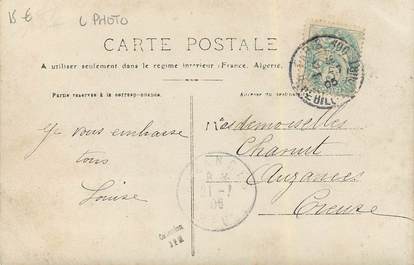 15 €
C PHOTO
CARTE POSTALE
A utiliser seulement dans le régime intérieur (France, Algérie
Partie réservée à la correspondance.
Adresse du
Je vous embrasse
tous
Louise
Mesdemoiselles
Chanut
Auzances
Creuse